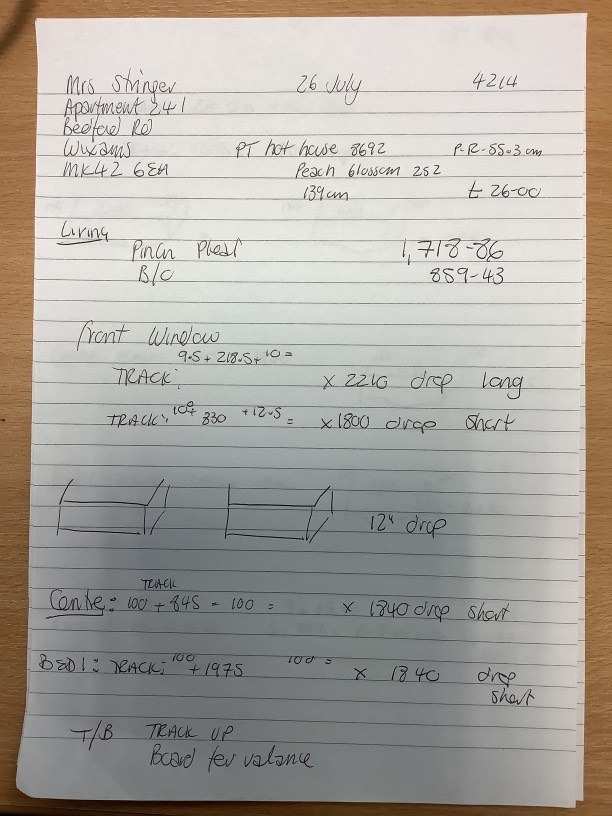 Mrs Stringer 26 July 4214
Apartment 241
Bedford RD
Wixams PT hot house 8692 P-R-55.3cm
MK42 6EA Peach blossom 252
139cm £26-00
Living
Pinch Pleat 1,718-86
B/O 859-43
front Window
9.5 + 218.5 + 10 =
TRACK: x 2210 drop long
TRACK: 100 + 830 + 12.5 = x 1800 drop short
12" drop
TRACK
Centre: 100 + 845 - 100 = x 1840 drop short
BED1: TRACK: 100 + 1975 100 = x 1840 drop
short
T/B TRACK UP
Board for valance